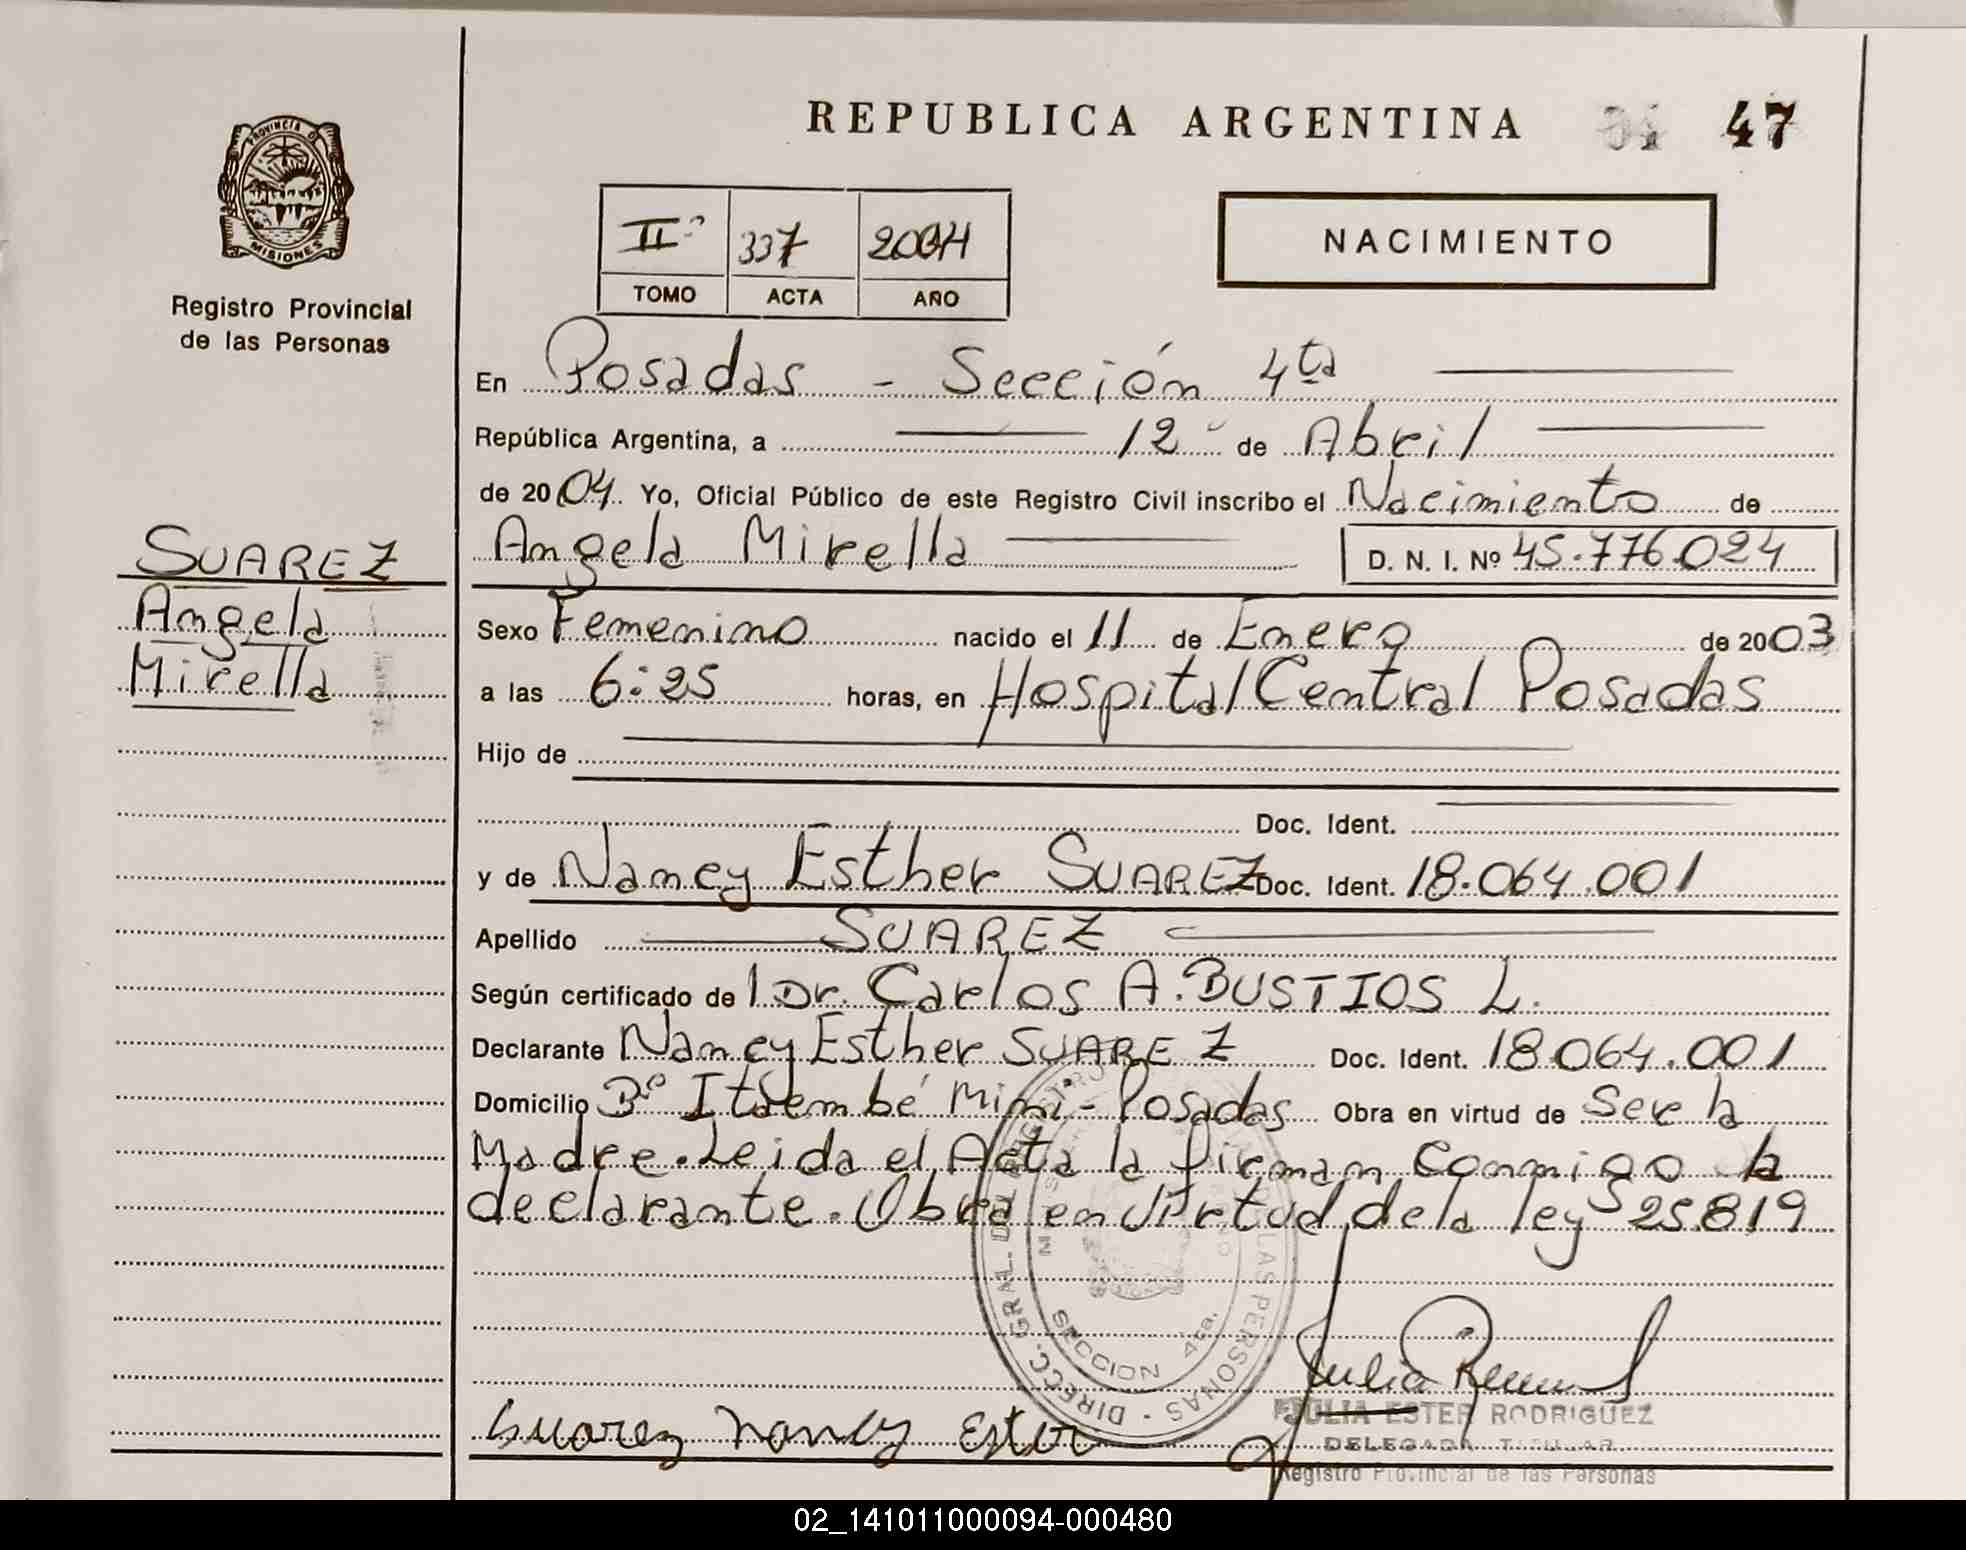 REPUBLICA ARGENTINA 47
PROVINCIA D
MISIONES
Registro Provincial
de las Personas
IIº 337 2004
TOMO ACTA AÑO
NACIMIENTO
En Posadas - Sección 4ta
República Argentina, a 12 de Abril
de 2004. Yo, Oficial Público de este Registro Civil inscribo el Nacimiento de
Angela Mirella D. N. I. Nº 45.776.024
SUAREZ
Angela
Mirella
Sexo Femenino nacido el 11 de Enero de 2003
a las 6:25 horas, en Hospital Central Posadas
Hijo de
Doc. Ident.
y de Nancy Esther SUAREZ Doc. Ident. 18.064.001
Apellido SUAREZ
Según certificado de Dr. Carlos A. BUSTIOS L.
Declarante Nancy Esther SUAREZ Doc. Ident. 18.064.001
Domicilio Bº Itaembé Mini - Posadas Obra en virtud de Ser la
Madre. Leida el Acta la firman conmigo la
declarante. Obra en virtud de la ley 25.819
DIRECC. GRAL. DEL REGISTRO DE LAS PERSONAS
SECCION 4ta.
Suarez Nancy Ester
JULIA ESTER RODRIGUEZ
DELEGADA TITULAR
Registro Provincial de las Personas
02_141011000094-000480